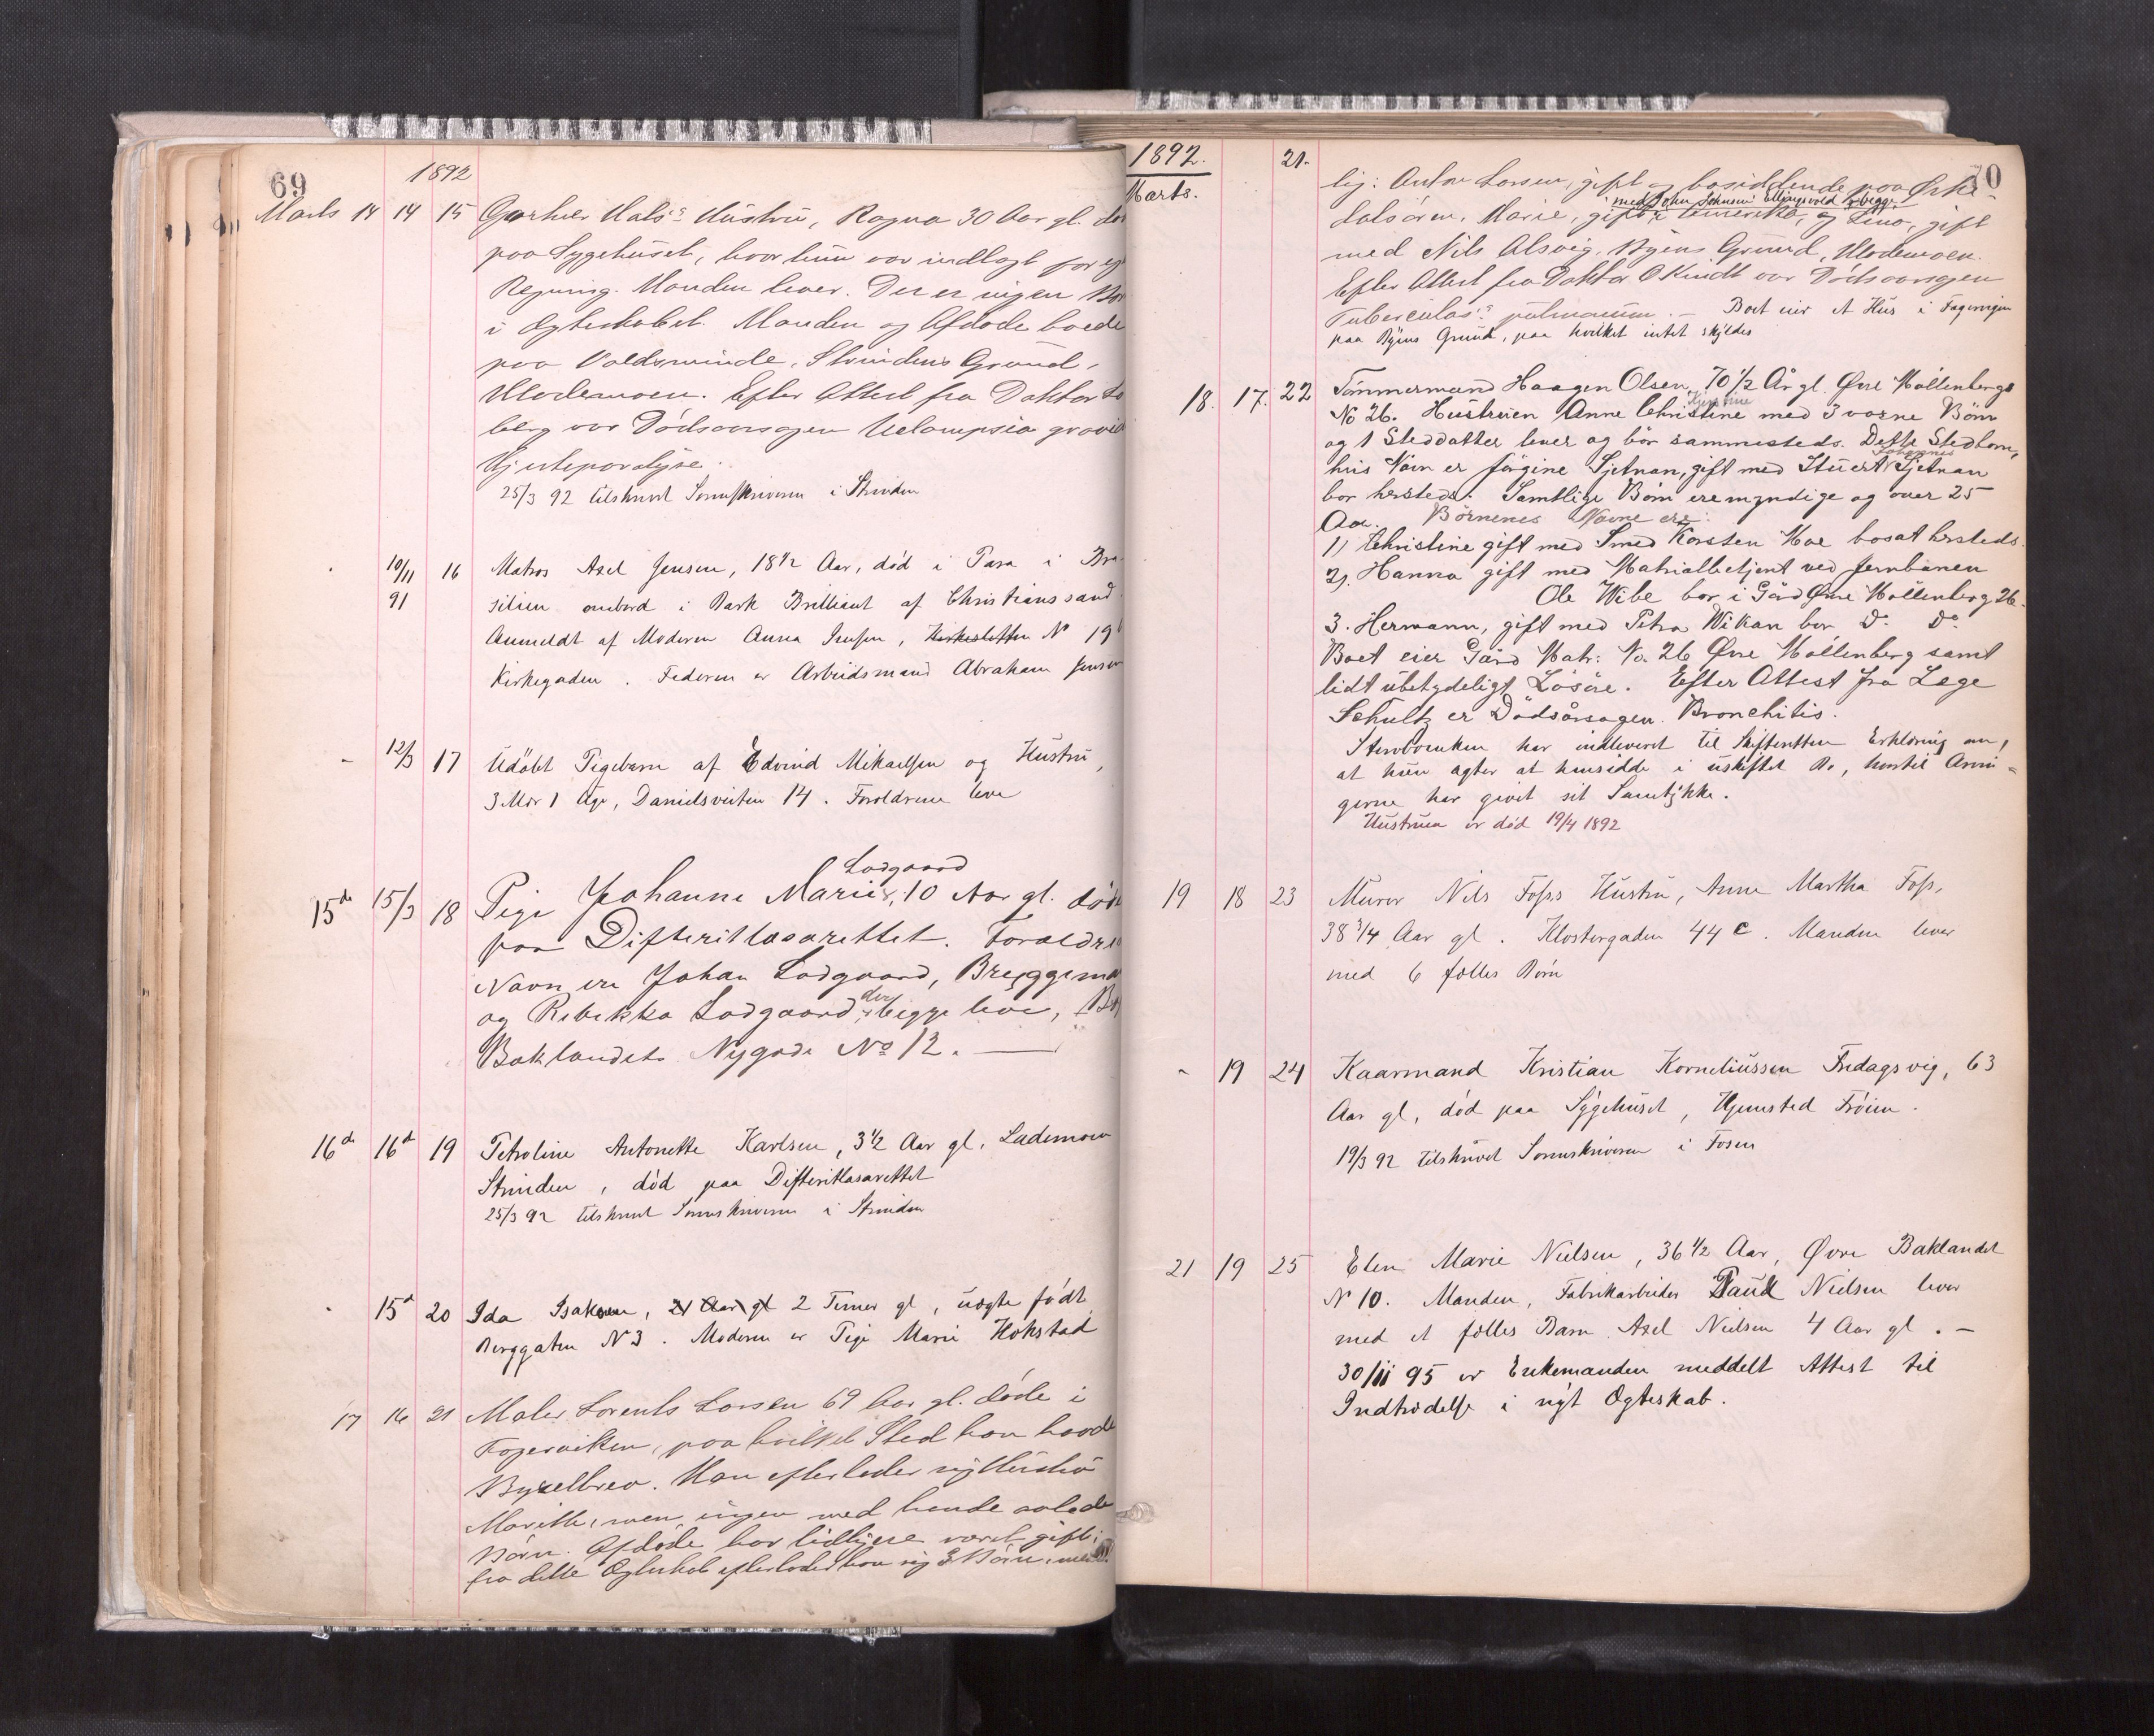 69
1892
Marts 14 14 15 Garhver Hals's Hustru, Ragna 30 Aar gl. dø
paa Sygehuset, hvor hun var indlagt for eg
Regning. Manden lever. Der er ingen Bør
i Ægteskabet. Manden og Afdøde boede
paa Voldsminde, Strindens Grund,
Efter Attest fra Doktor
berg var Dødsaarsagen Eclampsia gravid
Hjerteparalyse.
25/3 92 tilskrevet Sorenskriveren i Strinden
10/11 91 16 Matros Axel Jensen, 18½ Aar, død i Para i Bra-
silien ombord i Bark Brilliant af Christianssand.
Anmeldt af Moderen Anna Jensen, Kirkesletten No 19
Kirkegaden. Faderen er Arbeidsmand Abraham Jensen
- 12/3 17 Udøbt Pigebarn af Edvind Mikaelsen og Hustru,
3 Mdr 1 Uge, Danielsveiten 14. Forældrene leve
15de 15/3 18 Pige Johanne Marie Lodgaard, 10 Aar gl. døde
paa Difteritlasarettet. Foraeldre
Navn ere Johan Lodgaard, Bryggema
og Rebekka Lodgaard, der begge leve, Bo
Baklandets Nygade No 12. —
16de 16de 19 Petroline Antonette Karlsen, 3½ Aar gl. Lademoen
Strinden, død paa Difteritlasarettet
25/3 92 tilskrevet Sorenskriveren i Strinden
15de 20 Ida Isaksen, 21 Aar gl 2 Timer gl, uægte født,
Berggaten No 3. Moderen er Pige Marie Hokstad
17 16 21 Maler Lorents Larsen 69 Aar gl. døde i
Fagerviken, paa hvilket Sted han havde
Bygselbrev. Han efterlader sig Hustru
Marithe, men ingen med hende avlede
Børn. Afdøde har tidligere været gift;
fra dette Ægteskab efterlader han sig 3 Børn, nem
70
1892.
Marts.
21.
lig: Anton Larsen, gift og bosiddende paa Orke-
dalsøren, Marie, gift med John Johnsen Ellingsvold, begge i Amerika, og Lina, gift
med Nils Alsvig, Byens Grund,
Efter Attest fra Doktor O Kindt var Dødsaarsagen
Tuberculosis pulmonum. — Boet eier et Hus i Fagervigen
paa Byens Grund, paa hvilket intet skyldes
18. 17. 22 Tømmermand Haagen Olsen, 70½ År gl. Øvre Møllenberg
No 26. Hustruen Anne Christine Kjerstine med 3 voxne Børn
og 1 Steddatter lever og bor sammesteds. Dette Stedbarn,
hvis Navn er Jørgine Sjetnan, gift med Stuert Johannes Sjetnan
bor hersteds. Samtlige Børn ere myndige og over 25
Aar. Børnenes Navne ere:
1) Christine gift med Smed Korsten Moe bosat hersteds.
2). Hanna gift med Matrialbetjent ved Jernbanen
Ole Wibe bor i Gård Øvre Møllenberg 26.
3. Hermann, gift med Petra Wikan bor Do. Do.
Boet eier Gård Matr: No. 26 Øvre Møllenberg samt
lidt ubetydeligt Løsøre. Efter Attest fra Læge
Schultz er Dødsårsagen Bronchitis.
Stervboenken har indleveret til Skifteretten Erklæring om,
at hun agter at hensidde i uskiftet Bo, hvortil Arvin-
gerne har givet sit Samtykke.
Hustruen er død 19/4 1892
19 18 23 Murer Nils Foss's Hustru, Anne Martha Foss,
38¾ Aar gl. Klostergaden 44 c. Manden lever
med 6 fælles Børn
- 19 24 Kaarmand Kristian Korneliussen Fredagsvig, 63
Aar gl, død paa Sygehuset, Hjemsted Frøien.
19/3 92 tilskrevet Sorenskriveren i Fosen
21 19 25 Elen Marie Nielsen, 36½ Aar, Øvre Baklandet
No 10. Manden, Fabrikarbeider Paul Nielsen lever
med et fælles Barn Axel Nielsen 4 Aar gl. —
30/11 95 er Enkemanden meddelt Attest til
Indtrædelse i nyt Ægteskab.